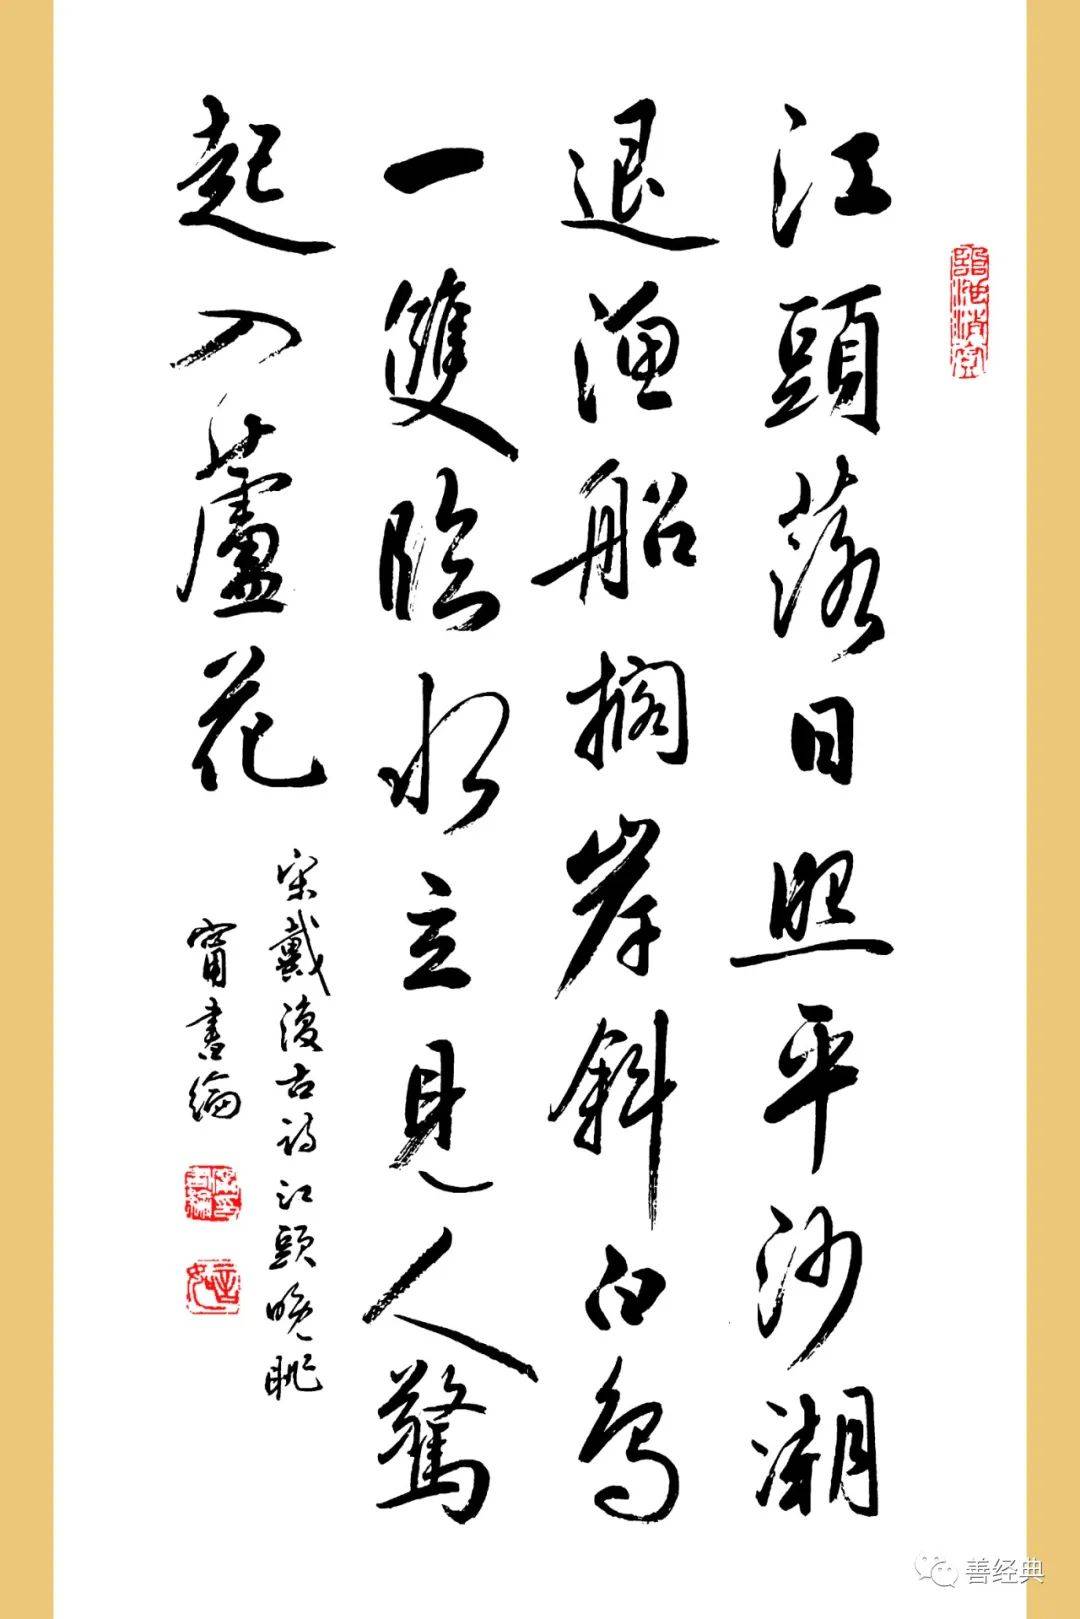 江頭落日照平沙潮
退漁船擱岸斜白鳥
一雙臨水立見人驚
起入蘆花
宋戴復古詩江頭晚眺
甯書綸
善经典